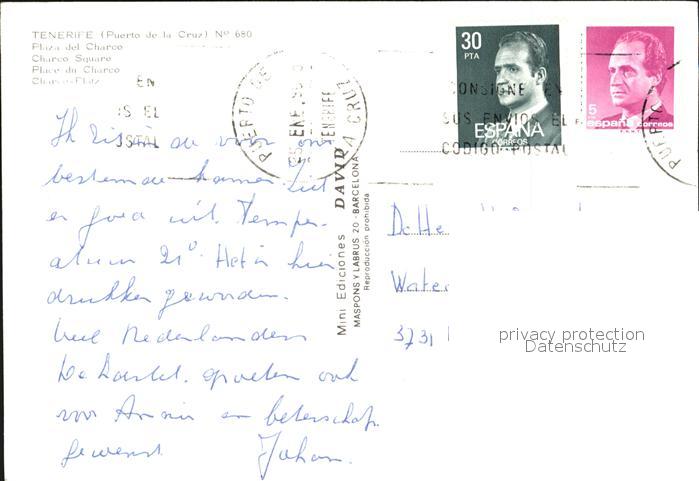 TENERIFE (Puerto de la Cruz) Nº 680
Plaza del Charco
Charco Square
Place du Charco
Charco-Platz
30
PTA
ESPAÑA
CORREOS
5
españa correos
PUERTO DE LA CRUZ
TENERIFE
ENE
CONSIGNE EN
SUS ENVIOS EL
CODIGO POSTAL
EN
IS EL
OSTAL
PUERTO
Mini Ediciones DAVID
MASPONS Y LABRUS 20 - BARCELONA
Reproducción prohibida
de voor ons
bestemde kamer. Ziet
er goed uit. Temper-
atuur 21° Het is hier
drukker geworden.
Veel Nederlanders
groeten ook
voor Annie en beterschap
gewenst Johan.
De He
Water
3731
privacy protection
Datenschutz